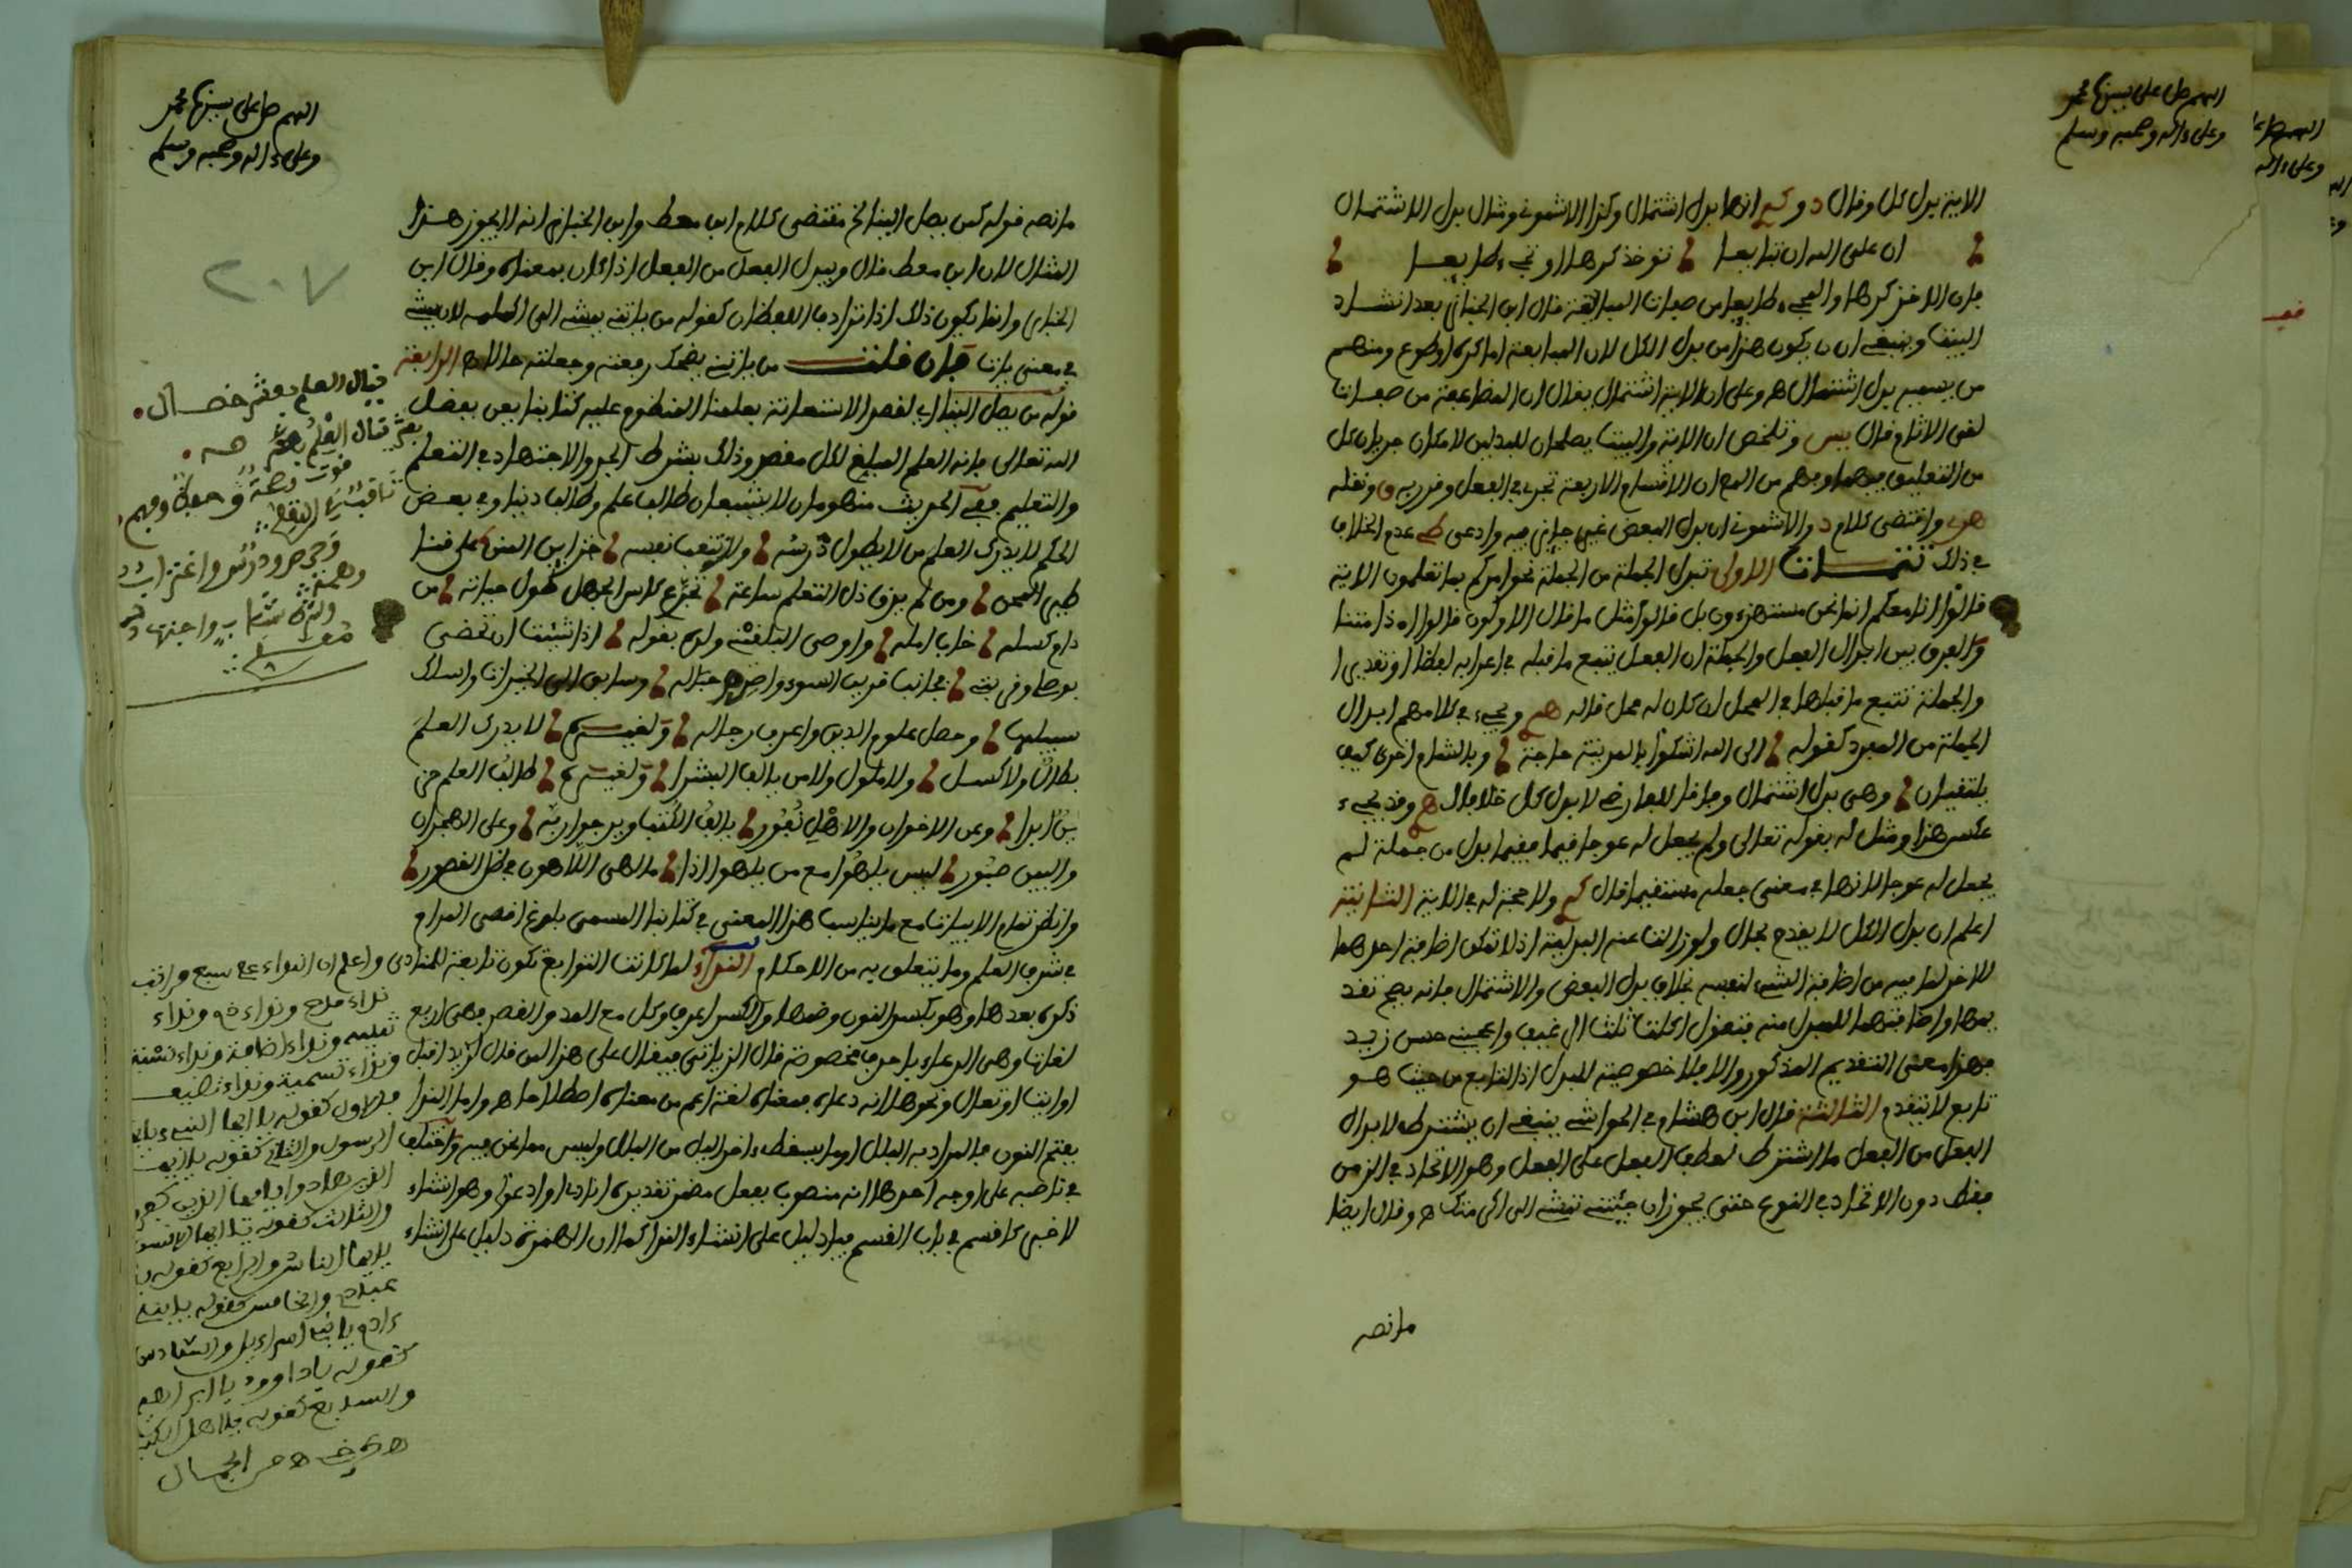 اللهم صل على سيدنا محمد
وعلى ءاله وصحبه وسلم
الاية بدل كل وقال د و انها بدل اشتمال وكذا الاشموني ومثال بدل الاشتمال
ان على الله ان تبايعا تؤخذ كرها او تجيء طايعا
فان الاخذ كرها والمجيء طايعا من صفات المبايعة قال ابن الخباز بعد انشاد
البيت وينبغي ان يكون هذا من بدل الكل لان المبايعة اما كره او طوع ومنهم
من يسميه بدل اشتمال هـ وعلى ان الاية اشتمال يقال ان المضاعفة من صفات
لقي الاثام قال يس وتلخص ان الاية والبيت يصلحان للبدلين لامكان جريان كل
من التعليق فيهما وفهم من الـ ان الاقسام الاربعة تجري في الفعل وقرر به و ونقله
واقتضى كلام د والاشموني ان بدل البعض غير جايز فيه وادعى عدم الخلاف
في ذلك تتمات الاولى تبدل الجملة من الجملة نحو امدكم بما تعلمون الاية
قالوا انا معكم انما نحن مستهزءون بل قالوا مثل ما قال الاولون قالوا اءذا متنا
والفرق بين ابدال الفعل والجملة ان الفعل يتبع ما قبله في اعرابه لفظا او تقديرا
والجملة تتبع ما قبلها في المحل ان كان له محل قاله ويجيء في كلامهم ابدال
الجملة من المفرد كقوله الى الله اشكوا بالمدينة حاجة وبالشام اخرى كيف
يلتقيان وهي بدل اشتمال وفاقا للمعارضي لا بدل كل خلافا لـ وقد يجيء
عكس هذا ومثل له بقوله تعالى ولم يجعل له عوجا قيما فقيما بدل من جملة لم
يجعل له عوجا لانها في معنى جعله مستقيما قال ولا حجة له في الاية الثانية
اعلم ان بدل الكل لا يقدم بحال ولو زالت عنه البدلية اذ لا تمكن اضافة احدهما
للاخر لما فيه من اضافة الشيء لنفسه بخلاف بدل البعض والاشتمال فانه يصح تقد
يمها واضافتهما للمبدل منه فتقول اكلت ثلث الرغيف واعجبني حسن زيد
فهذا معنى التقديم المذكور والا فلا خصوصية للبدل اذ التابع من حيث هو
تابع لا يتقدم الثالثة قال ابن هشام في الحواشي ينبغي ان يشترط لابدال
الفعل من الفعل ما اشترط لعطف الفعل على الفعل وهو الاتحاد في الزمن
فقط دون الاتحاد في النوع حتى يجوز ان جئتني تمشي الي اكرمتك هـ وقال ايضا
ما نصه
اللهم صل على سيدنا محمد
وعلى ءاله وصحبه وسلم
٢٠٧
ما نصه قوله كمن يصل الينا الخ مقتضى كلام ابن معط وابن الخباز انه لا يجوز هذا
المثال لان ابن معط قال ويبدل الفعل من الفعل اذا كان بمعناه وقال ابن
الخباز وانما يكون ذلك اذا ترادف اللفظان كقوله من ياتني يمشي الي اكلمه لان يمشي
في معنى ياتي فان قلت من ياتني يضحك رفعته وجعلته حالا هـ الرابعة
قوله من يصل الينا اي لقصد الاستعانة بعلمنا المنطوي عليه كتابنا يعن بفضل
الله تعالى فانه العلم المبلغ لكل مقصد وذلك بشرط الجد والاجتهاد في التعلم
والتعليم ففي الحديث منهومان لا يشبعان طالب علم وطالب دنيا وفي بعض
الحكم لا يدرك العلم من لا يطول درسه ولا يتعب نفسه
ومن لم يذق ذل التعلم ساعة تجرع كاس الجهل طول حياته من
دام كسله خاب امله واوصى التلقفة ولده بقوله اذا شئت ان تحضى
بوصلي وفي بيتي فجانب قرين السوء واصرم حباله وسابق الى الخيرات واسلك
سبيلها وحصل علوم الدين واعرف رجاله ولغيره لا يدرك العلم
بطال ولا كسل ولا ملول ولا من يالف البشرا ولغيره طالب العلم من
وعن الاخوان والاهل نفور يالف الكتب ويرجوا ربه وعلى الهجران
والبين صبور ليس يلهوا مع من يلهوا اذا ما لهى اللاهون في ظل القصور
وانظر تمام الابيات مع ما يناسب هذا المعنى في كتابنا المسمى بلوغ اقصى المرام
في شرف العلم وما يتعلق به من الاحكام النداء لما كانت التوابع تكون تابعة للمنادى
ذكره بعدها وهو بكسر النون وضمها والكسر اعرف وكل مع المد والقصر فهي اربع
لغات وهي الدعاء باحرف مخصوصة قال الزياتي فيقال على هذا لمن قال لزيد اقبل
او ايت او تعال ونحوها انه دعاه فمعناه لغة اعم من معناه اصطلاحا هـ واما الندا
بفتح النون فالمراد به البلل او ما يسقط ءاخر الليل من البلل وليس مما نحن فيه واختلف
في ناصبه على اوجه احدها انه منصوب بفعل مضمر تقديره انادي او ادعو وهو انشاء
لا خبر كاقسم في باب القسم فيا دليل على انشاء النداء كما ان الهمزة دليل على انشاء
ينال العلم بعشر خصال
واعلم ان النداء على سبع مراتب
نداء مدح ونداء ذم ونداء
تنبيه ونداء اضافة ونداء نسبة
ونداء تسمية ونداء تضيف
فالاول كقوله يا ايها النبي يا ايها
الرسول والثاني كقوله يا ايها
الذين هادوا يا ايها الذين كفروا
والثالث كقوله يا ايها الانسان
يا ايها الناس والرابع كقوله يا
عبادي والخامس كقوله يا بني
ءادم يا بني اسراءيل والسادس
كقوله يا داوود يا ابراهيم
والسابع كقوله يا اهل الكتب